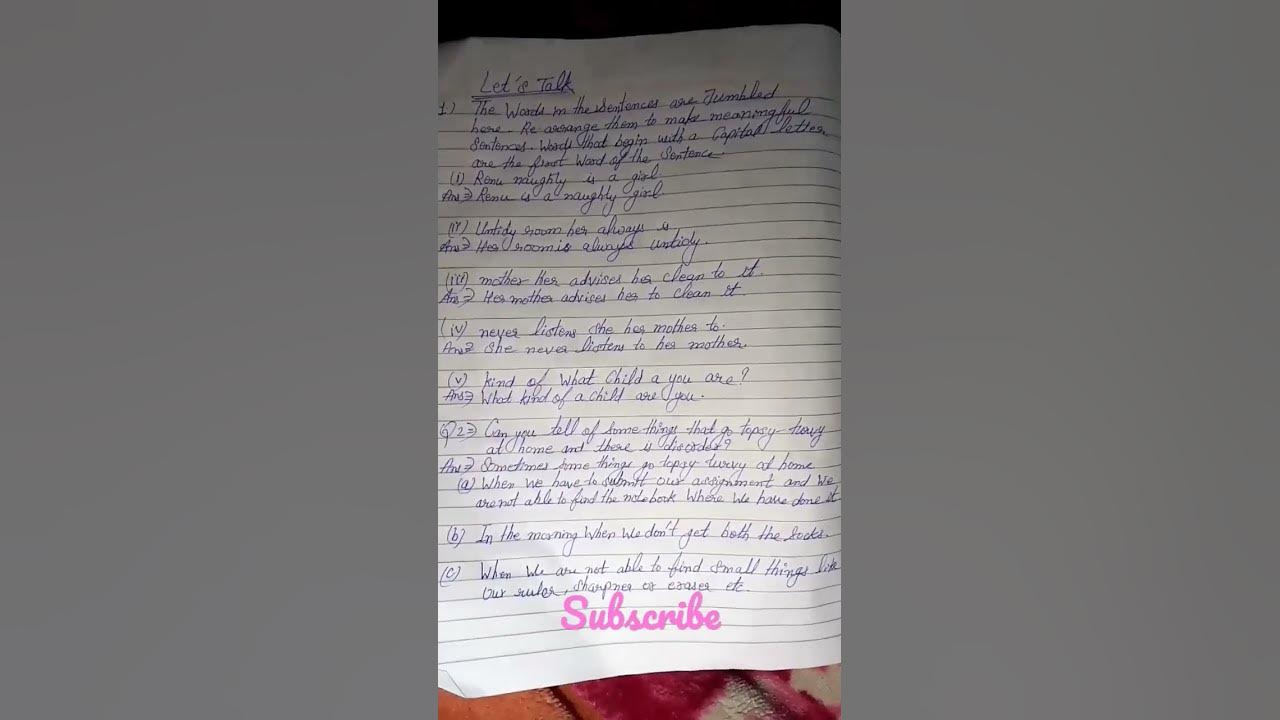 Let's Talk
1) The Words in the sentences are Jumbled
here. Re arrange them to make meaningful
Sentences. Words that begin with a Capital letter
are the first Word of the Sentence.
(i) Renu naughty is a girl.
Ans⇒ Renu is a naughty girl.
(ii) Untidy room her always is
Ans⇒ Her room is always untidy.
(iii) mother Her advises her clean to it.
Ans⇒ Her mother advises her to clean it.
(iv) never listens she her mother to.
Ans⇒ She never listens to her mother.
(v) kind of What Child a you are?
Ans⇒ What kind of a child are you.
Q2⇒ Can you tell of some things that go topsy-turvy
at home and there is disorder?
Ans⇒ Sometimes some things go topsy turvy at home
(a) When We have to submit our assignment and We
are not able to find the notebook Where We have done it
(b) In the morning When We don't get both the socks.
(c) When We are not able to find small things like
our ruler, sharpner or eraser etc.
Subscribe